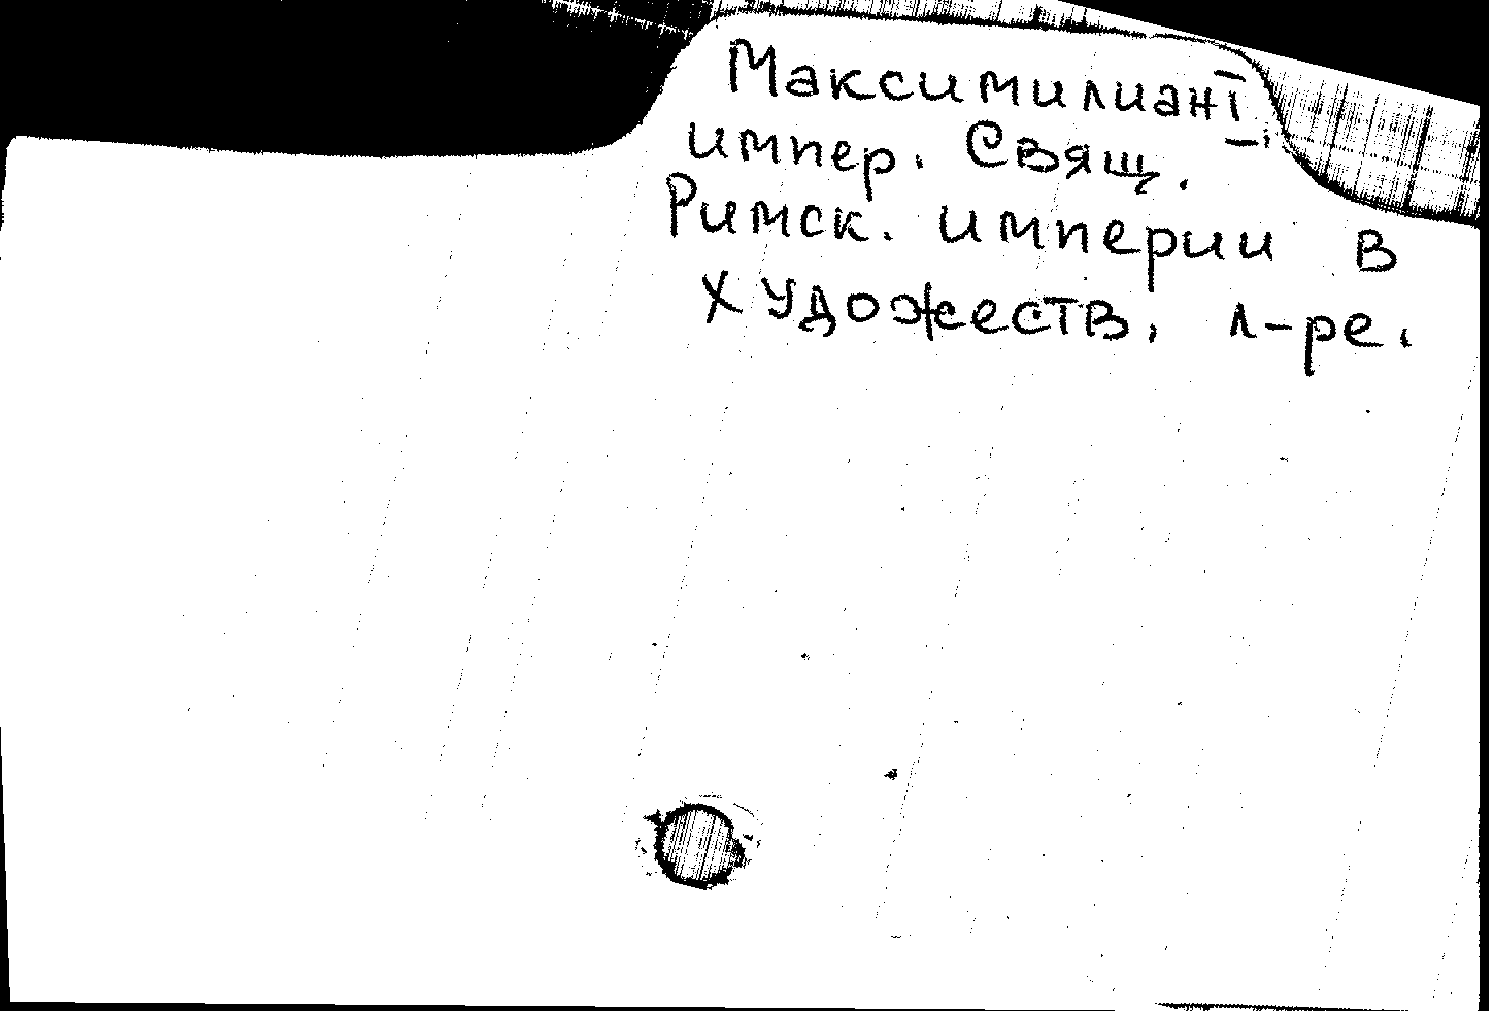 Максимилиан I,
импер. Свящ.
Римск. империи в
художеств. л-ре.